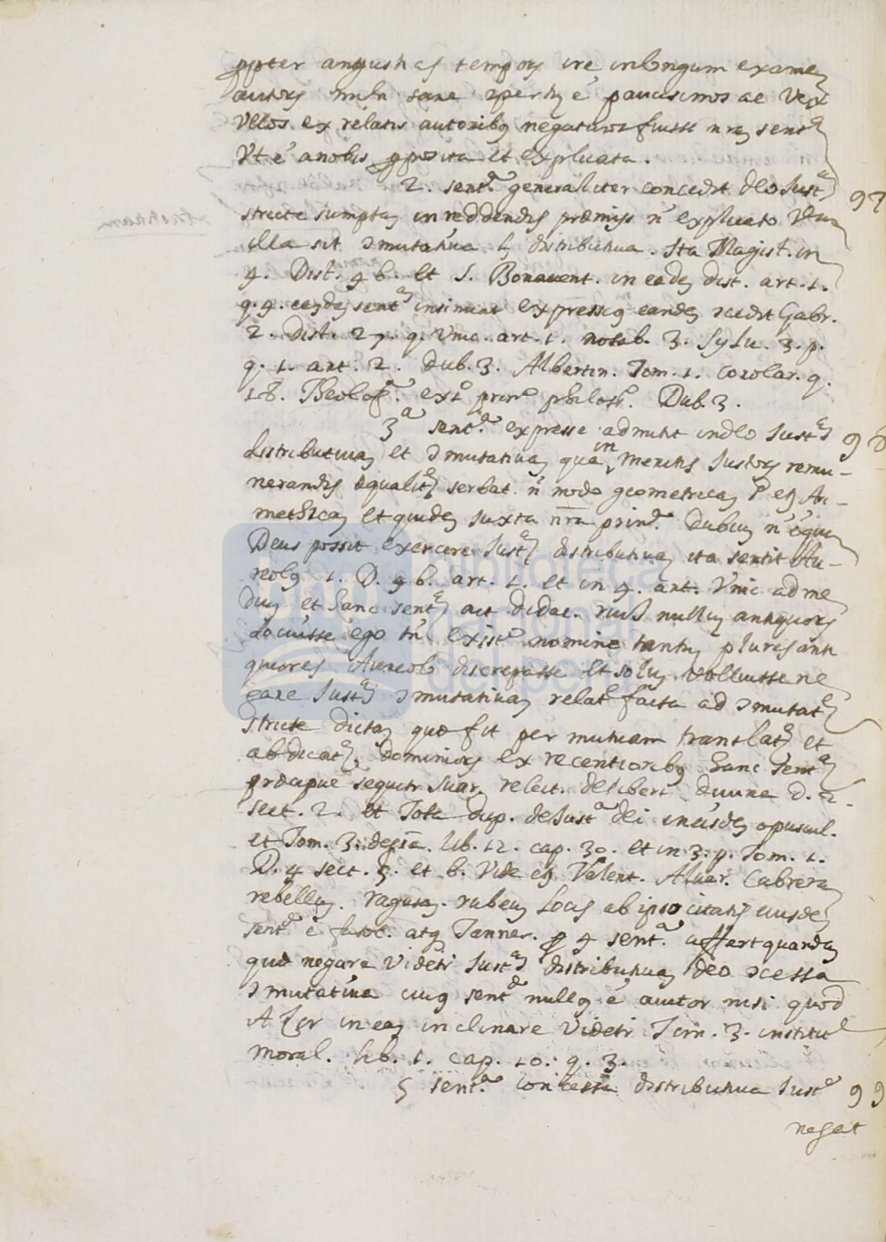 ppter angustias temporis ire in longum examen
autoris mihi sane apertum é paucissimos ac vix
Vllos ex relatis autoribq negaturos fuisse nram sent.
Vt é a nobis pposita et explicata.
2. sent.ª generaliter concedit deo Just.ª 97
stricte sumptam in reddendis præmijs n explicato Vtrum
illa sit ɔmutatíua l distributiua. Ita Magist. in
4. Dist. 46. et S. Bonauent. in eadem dist. art. 1.
q. 4. eandem sent.ª insinuat expressiq eandem ɔcedit Gabr.
2. Dist. 27. q. Vnic. art. 1. notab. 3. Sylu. 3. p.
q. 1. art. 2. dub. 3. Albertin. Tom. 1. corolar. q.
18. Theolog. ex 1.º prin.º philos. Dub. 3.
3ª sent.ª expresse admittit in deo Just.ª 98
distributiuam et ɔmutatiuam quia in meritis Justorum remu-
nerandis æqualit. serbat n modo geometricam s etiam Ari-
methicam et quidem juxta nra prin.ª Dubium n é quin
Deus possit exercere Just.ª distributiuam ita sentit Au-
reolq 1. D. 46. art. 1. et in 4. art. Vnic. ad me
dium et hanc sent. ait Didac. ruis nullum antiquorum
docuisse ego tn existo nomine tantum plures anti
quiores Aureolo discrepasse et solum volluisse ne
gare Just.ª ɔmutatiuam relate facta ad ɔmutat.
stricte dictam quæ fit per mutuam translat. et
abdicat. dominiorum ex recentioribq hanc sent.ª
præcipue sequitr Suar. relect. de libert. diuina D. 2.
sect. 2. et Tota disp. de Just.ª dei in eisdem opuscul.
et Tom. 3. de gra. lib. 12. cap. 30. et in 3. p. Tom. 1.
D. 4 sect. 5. et 6. Vide etiam Valent. Aluar. Cabreram
rebellum. ragusam. rubeum Locis ab ipso citatis eiusdem
sent.ª é atq Tanner. p 4 sent.ª affert quandam
quæ negare Videtr Just.ª distributiuam deo ɔcessa
ɔmutatíua cuiq sent.ª nullq é autor nisi quod
Azor in eam inclinare Videtr Tom. 3. institut
moral. lib. 1. cap. 10. q. 3.
5 sent.ª concessa distributiua Just.ª 99
negat